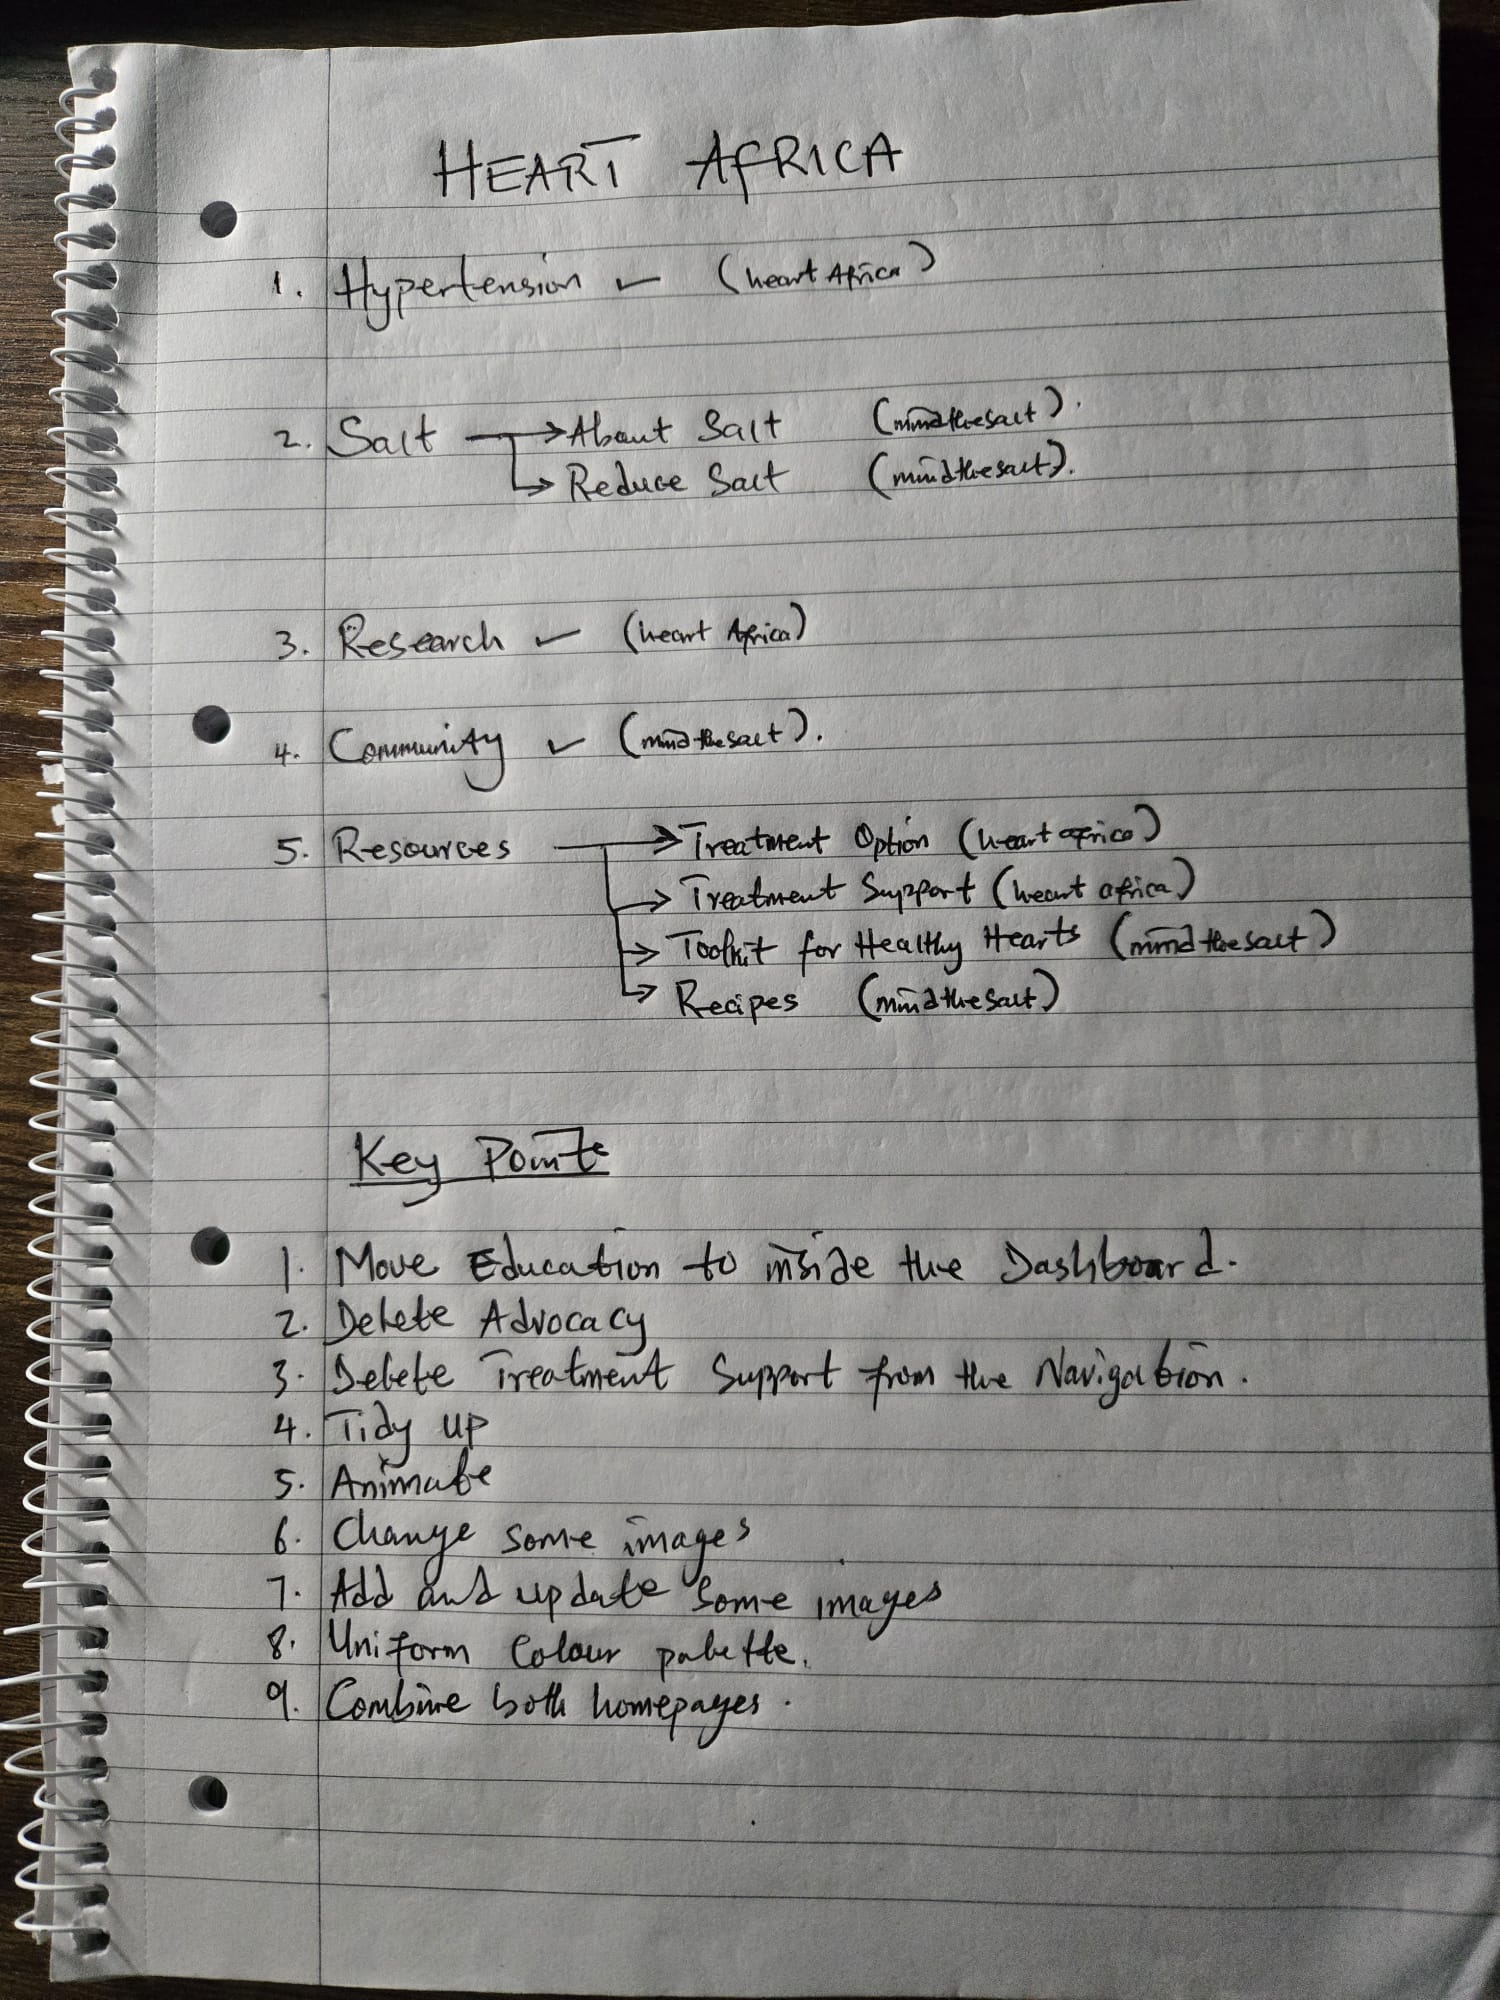 HEART AFRICA
1. Hypertension ✓ (heart Africa)
2. Salt → About Salt (mindthesalt).
↳ Reduce Salt (mindthesalt).
3. Research ✓ (heart Africa)
4. Community ✓ (mindthesalt).
5. Resources → Treatment Option (heart africa)
→ Treatment Support (heart africa)
→ Toolkit for Healthy Hearts (mindthesalt)
↳ Recipes (mindthesalt)
Key Points
1. Move Education to inside the Dashboard.
2. Delete Advocacy
3. Delete Treatment Support from the Navigation.
4. Tidy up
5. Animate
6. Change some images
7. Add and update some images
8. Uniform Colour palette.
9. Combine both homepages.